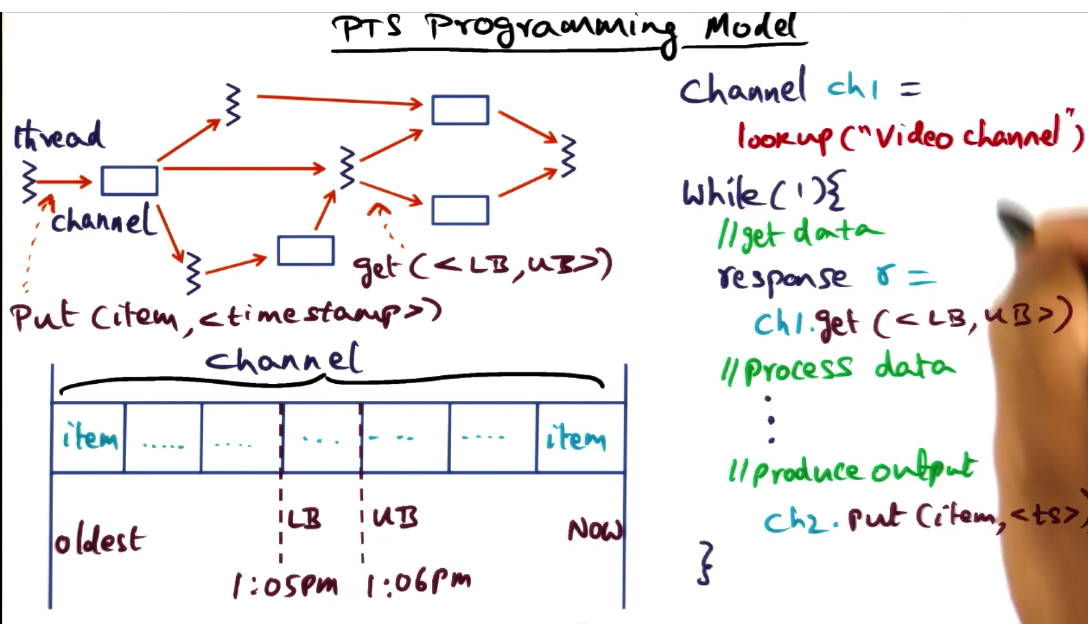 PTS Programming Model
thread
channel
Put (item, <timestamp>)
get (<LB, UB>)
channel
item ..... .... ... - .. .... item
LB UB
oldest
Now
1:05pm 1:06pm
Channel ch1 =
lookup("Video channel")
While(1){
//get data
response r =
ch1.get (<LB, UB>)
//Process data
//Produce output
ch2. Put (item, <ts>)
}